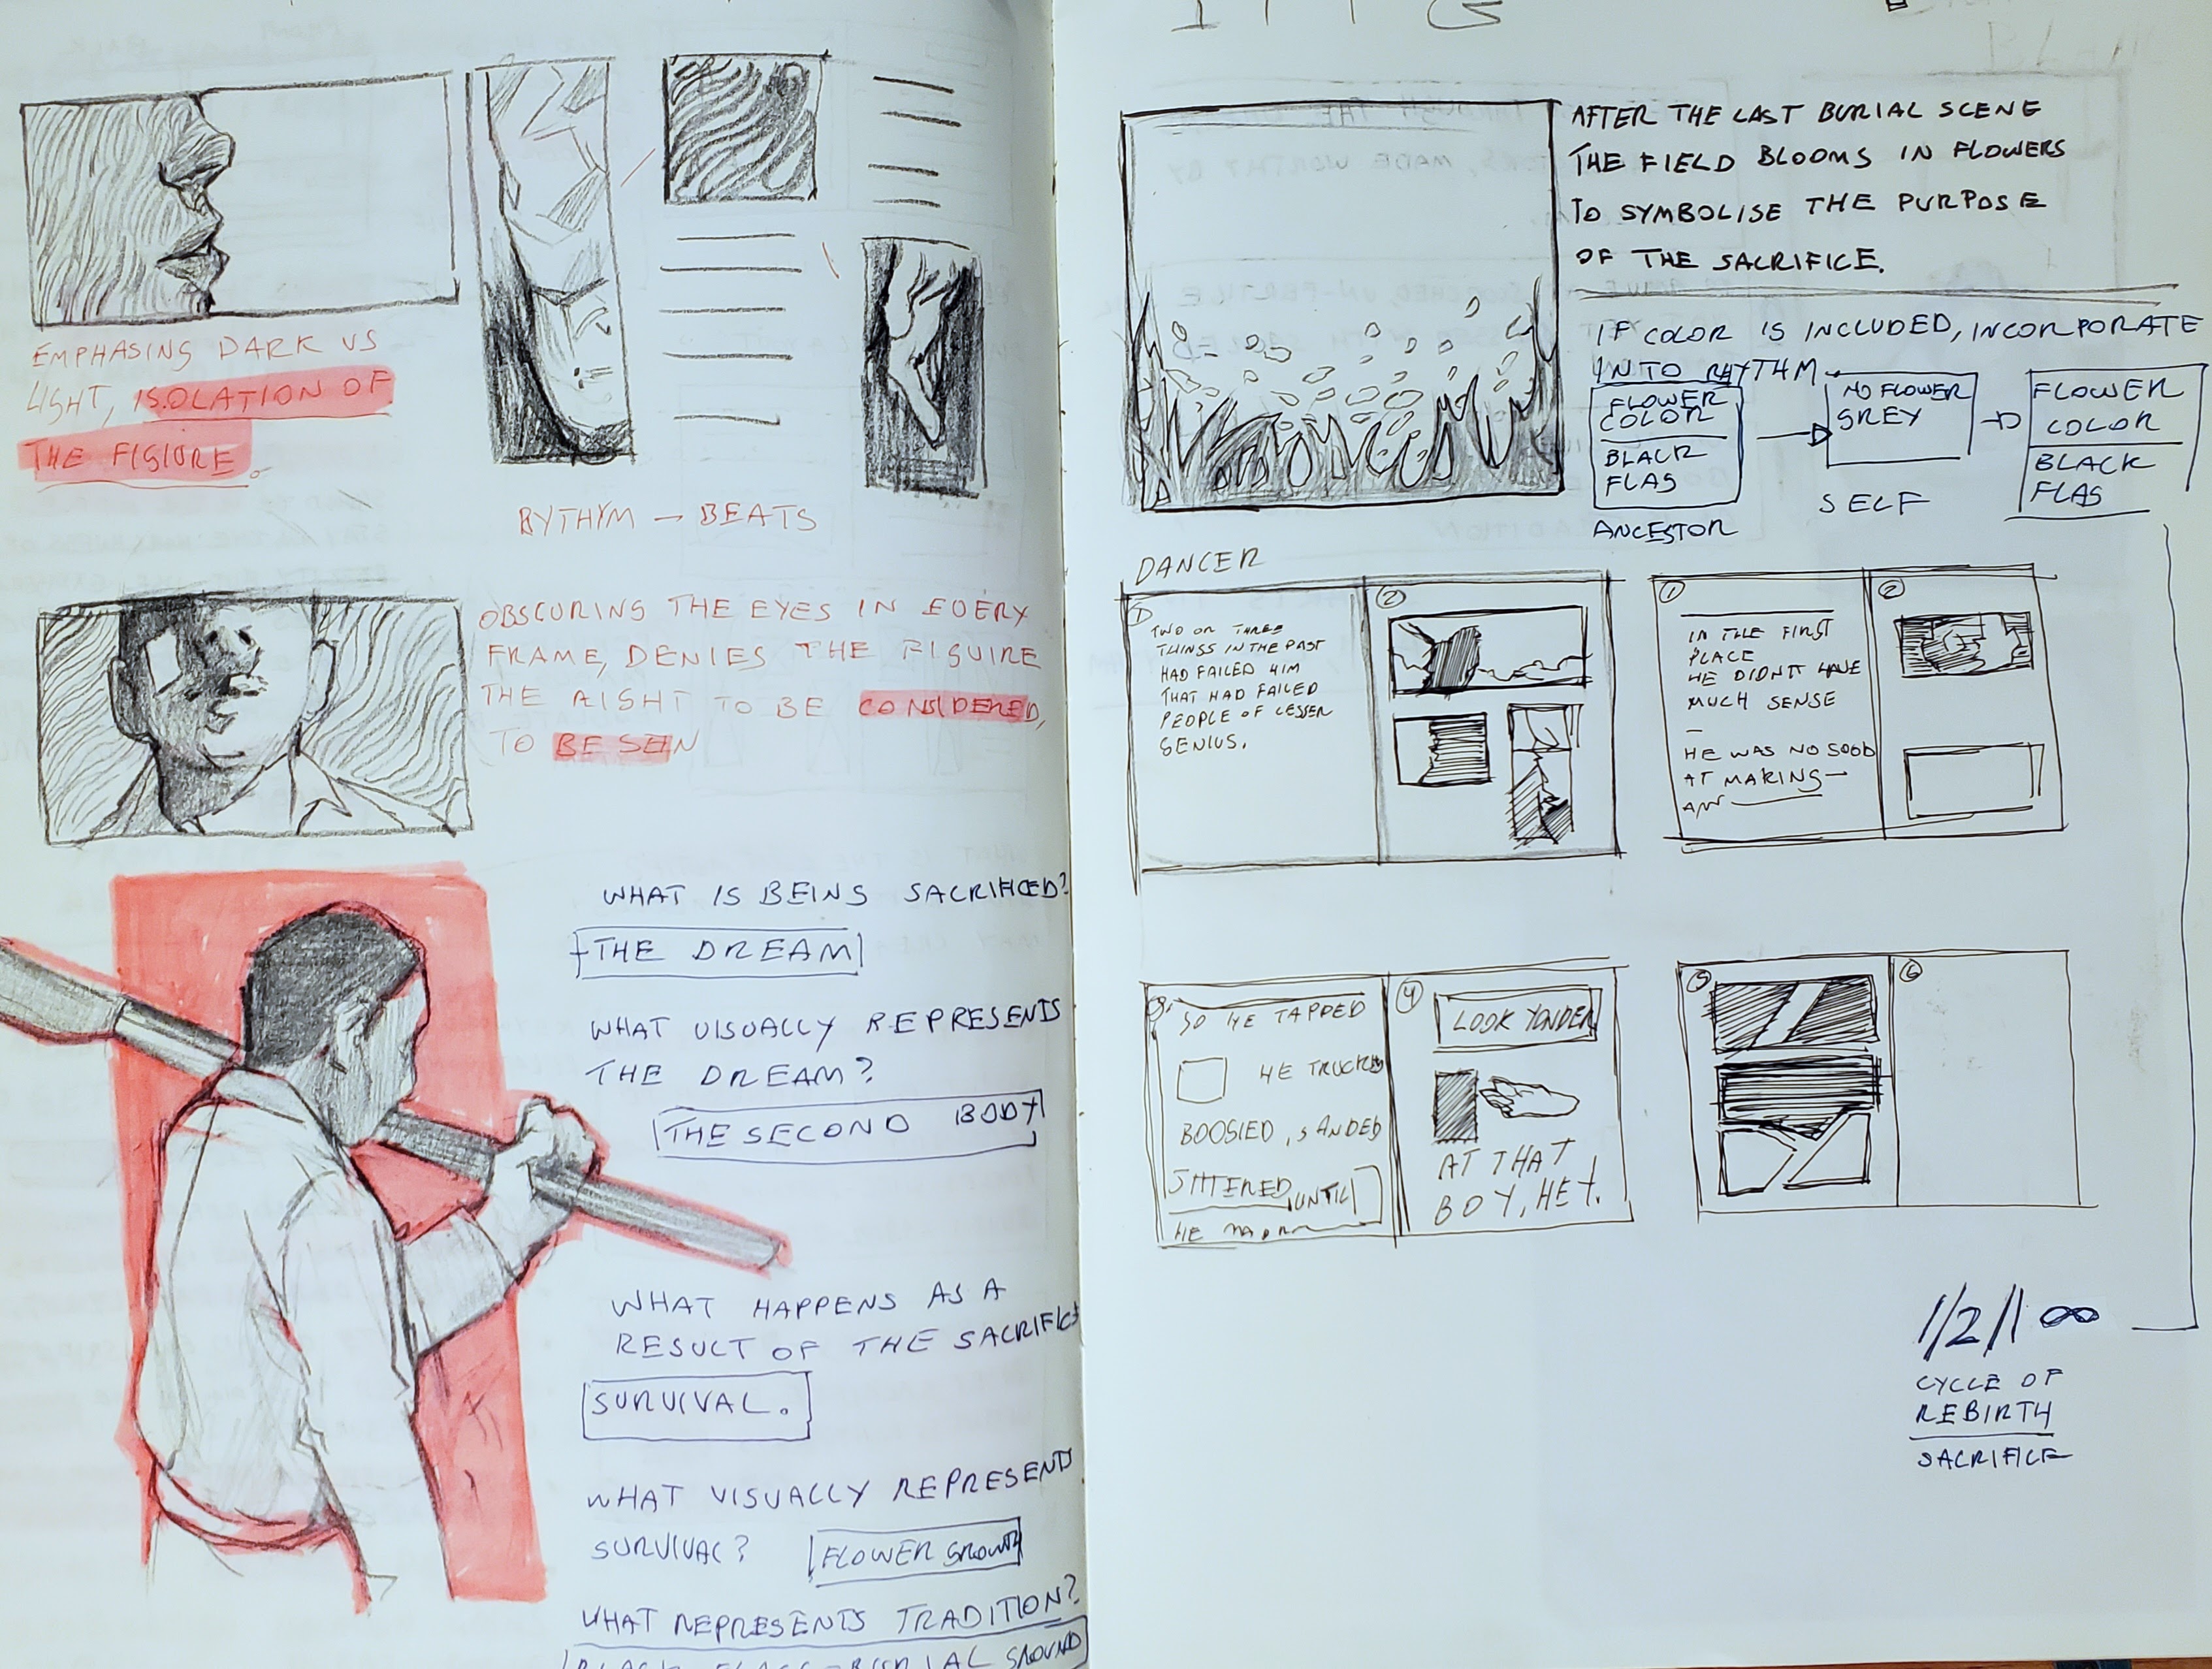 EMPHASING DARK VS
LIGHT, ISOLATION OF
THE FIGIURE.
RYTHYM → BEATS
OBSCURING THE EYES IN EVERY
FRAME, DENIES THE FIGUIRE
THE RIGHT TO BE CONSIDERED,
TO BE SEEN
WHAT IS BEING SACRIFICED?
THE DREAM
WHAT VISUALLY REPRESENTS
THE DREAM?
THE SECOND BODY
WHAT HAPPENS AS A
RESULT OF THE SACRIFICE
SURVIVAL.
WHAT VISUALLY REPRESENTS
SURVIVAL? FLOWER GROWTH
WHAT REPRESENTS TRADITION?
BLACK FLAGS BURIAL GROUND
AFTER THE LAST BURIAL SCENE
THE FIELD BLOOMS IN FLOWERS
TO SYMBOLISE THE PURPOSE
OF THE SACRIFICE.
IF COLOR IS INCLUDED, INCORPORATE
INTO RHYTHM.
FLOWER
COLOR
BLACK
FLAG
ANCESTOR
NO FLOWER
GREY
SELF
FLOWER
COLOR
BLACK
FLAG
DANCER
1
TWO OR THREE
THINGS IN THE PAST
HAD FAILED HIM
THAT HAD FAILED
PEOPLE OF LESSER
GENIUS.
2
1
IN THE FIRST
PLACE
HE DIDN'T HAVE
MUCH SENSE
–
HE WAS NO GOOD
AT MAKING —
AN
2
3
SO HE TAPPED
HE TRUCKED
BOOGIED, SANDED
JITTERED, UNTIL
HE
4
LOOK YONDER
AT THAT
BOY, HEY.
5
6
1/2/1 ∞
CYCLE OF
REBIRTH
SACRIFICE